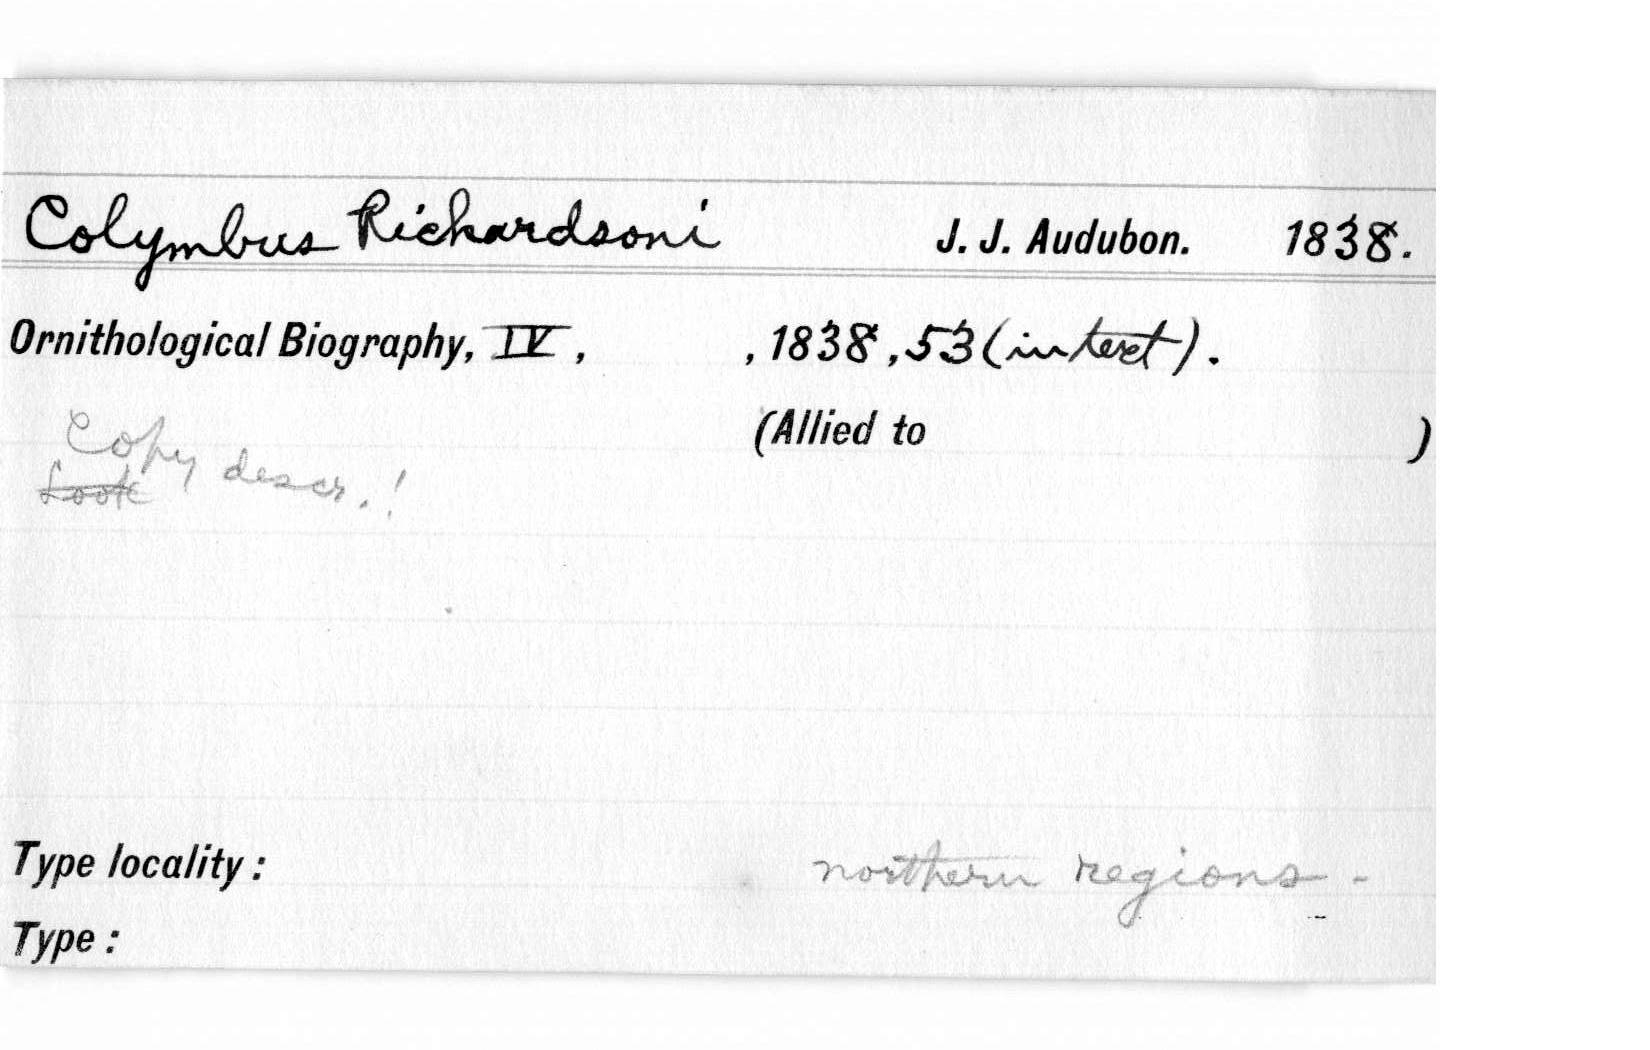 Colymbus Richardsoni J. J. Audubon. 1838.
Ornithological Biography, IV, , 1838, 53 (in text).
(Allied to )
Copy descr.!
Look
Type locality: northern regions -
Type: